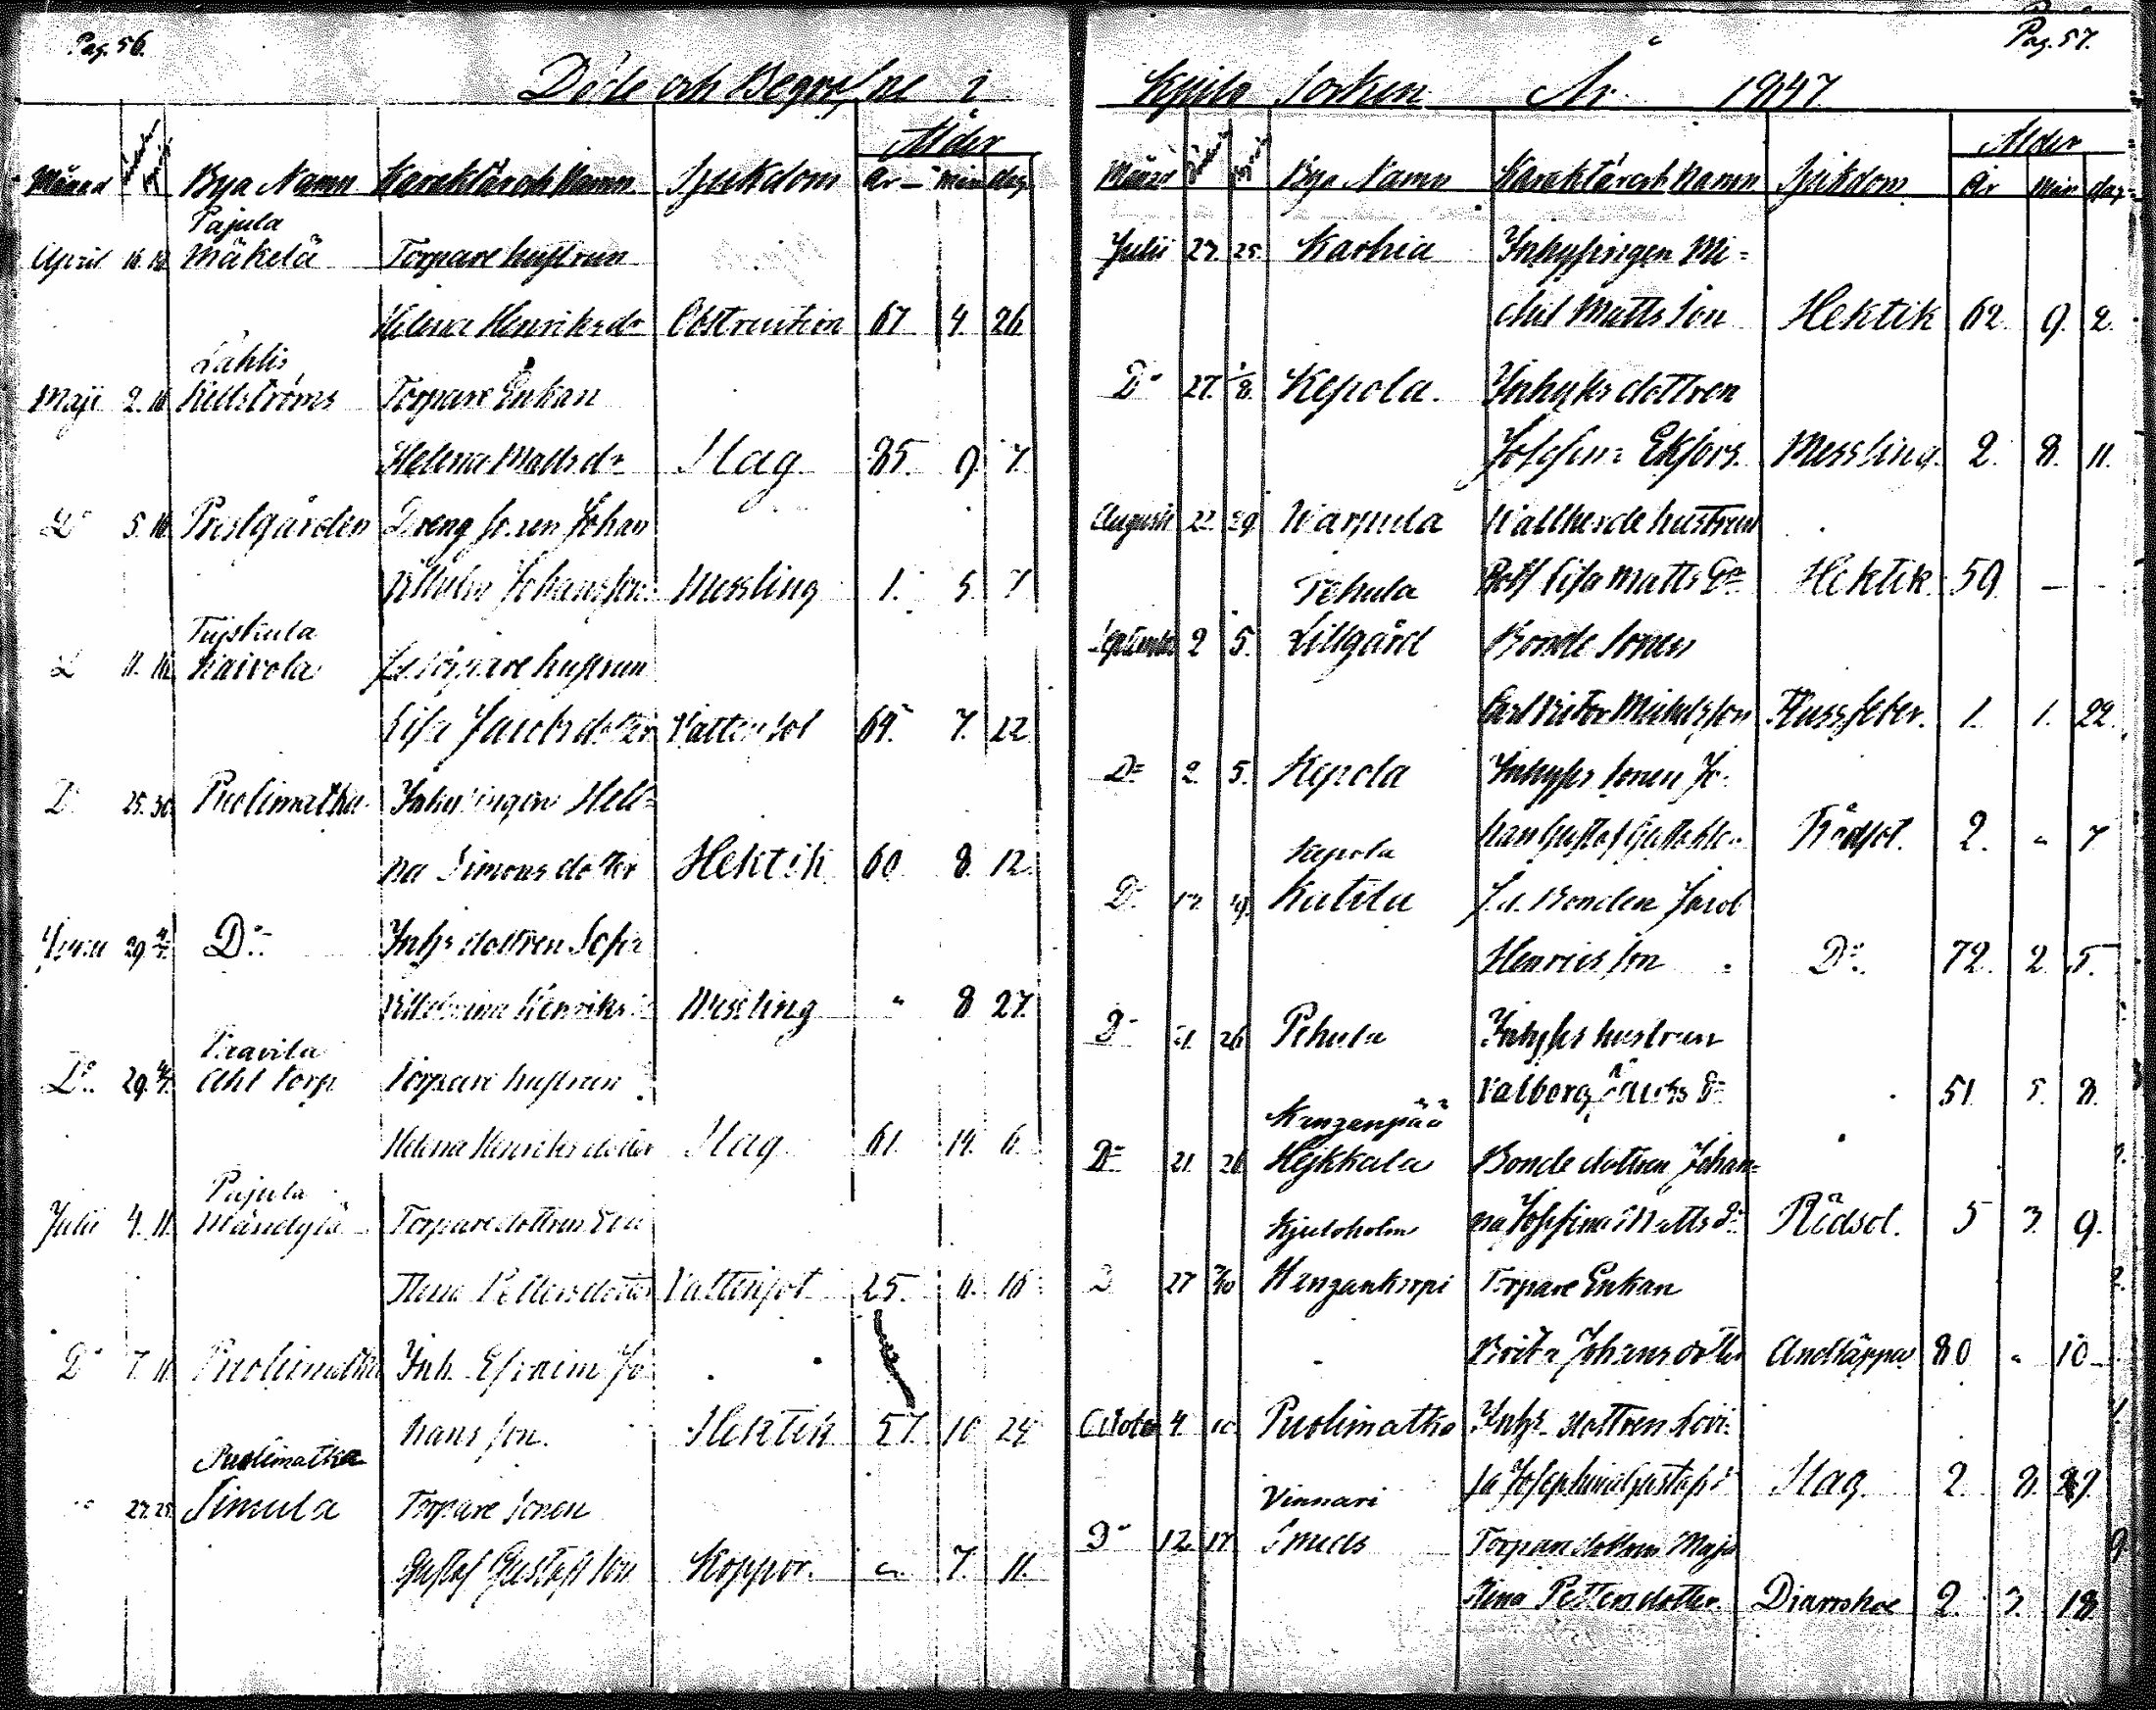 Pag. 56.
Döde och Begrafne i
Ålder
Månad Bya Namn Karaktär och Namn Sjukdom År mån dag
Pajula
April 16. Mäkelä Torpare hustrun
Helena Henriksdr Obstruction 67 4 26
Lahlis
Maji 2. 16 Kellströms Torpare Enkan
Helena Mattsdr Slag 85. 9 7
Do 5. 16 Prestgården Dreng sonen Johan
Vilhelm Johansson Messling 1. 5 7
11. 16 Kaivola hustrun
Lisa Jacobsdotter Vattensot 64. 7. 22
D 25. 30 Puolimatka Hele-
na Simonsdotter Hektik 60 8 12
29. Do Inhs dottren Sofia
Vilhelmina Henriks Messling " 8 27.
Do 29. Ahl torp Torpare hustrun
Helena Henriksdotter Slag 61. 6
Pajula
Julii 4. 11. Mändylä Torpare dottren
Petters dotter Vattensot 25. 6. 16
Do 7. 11. Puolimatka Inh. Efraim Jo
hans son. Hektik 57. 10 24
Puolimatka
27. 25. Simula Torpare sonen
Gustaf Gustafsson Koppor. " 7. 11.
Pag. 57.
Kjulo Socken År 1847
Ålder
Månad Bya Namn Karaktär och Namn Sjukdom År Mån dag
Julii 27. 25. Karhia Inhysingen Mi-
chel Matts son Hektik 62 9. 2.
Do 27. 1/8. Kepola. Inhyses dottren
Josefina Ekfors. Messling. 2. 8. 11.
Augusti 22. 29. Warpula Wallherde hustrun
Lisa Matts Dr Hektik 59 — -
Pehula
September 2 5. Lillgård Bonde sonen
Carl Victor Michelsson Flussfeber. 1. 1. 22.
Do 2. 5. Kepola Inhyses sonen Jo-
han Gustaf Rödsot. 2. " 7
Kepola
Do 19. Katila F.d. Bonden Jacob
Henriks son Do. 72. 2. 5.
Do 26 Pehula Inhyses hustrun
Valborg dr 51. 5. 8.
Kanzenpää
Do 21. 26 Hejkkala Bonde dottren Johan-
na Josefina Matts dr Rödsot. 5 3. 9.
Kjuloholm
D 27 Torpare Enkan
Brita Johans dotter Andtäppa 80 " 10
October 4. 10. Puolimatka Inhs dottren Lovi-
sa Josephina Gustafs dr Slag. 2. 8.
Vinnari
Do 12. 17. Smeds Torpare dottren Maja
Stina Petters dotter. Diarrohoe 2. 3. 18